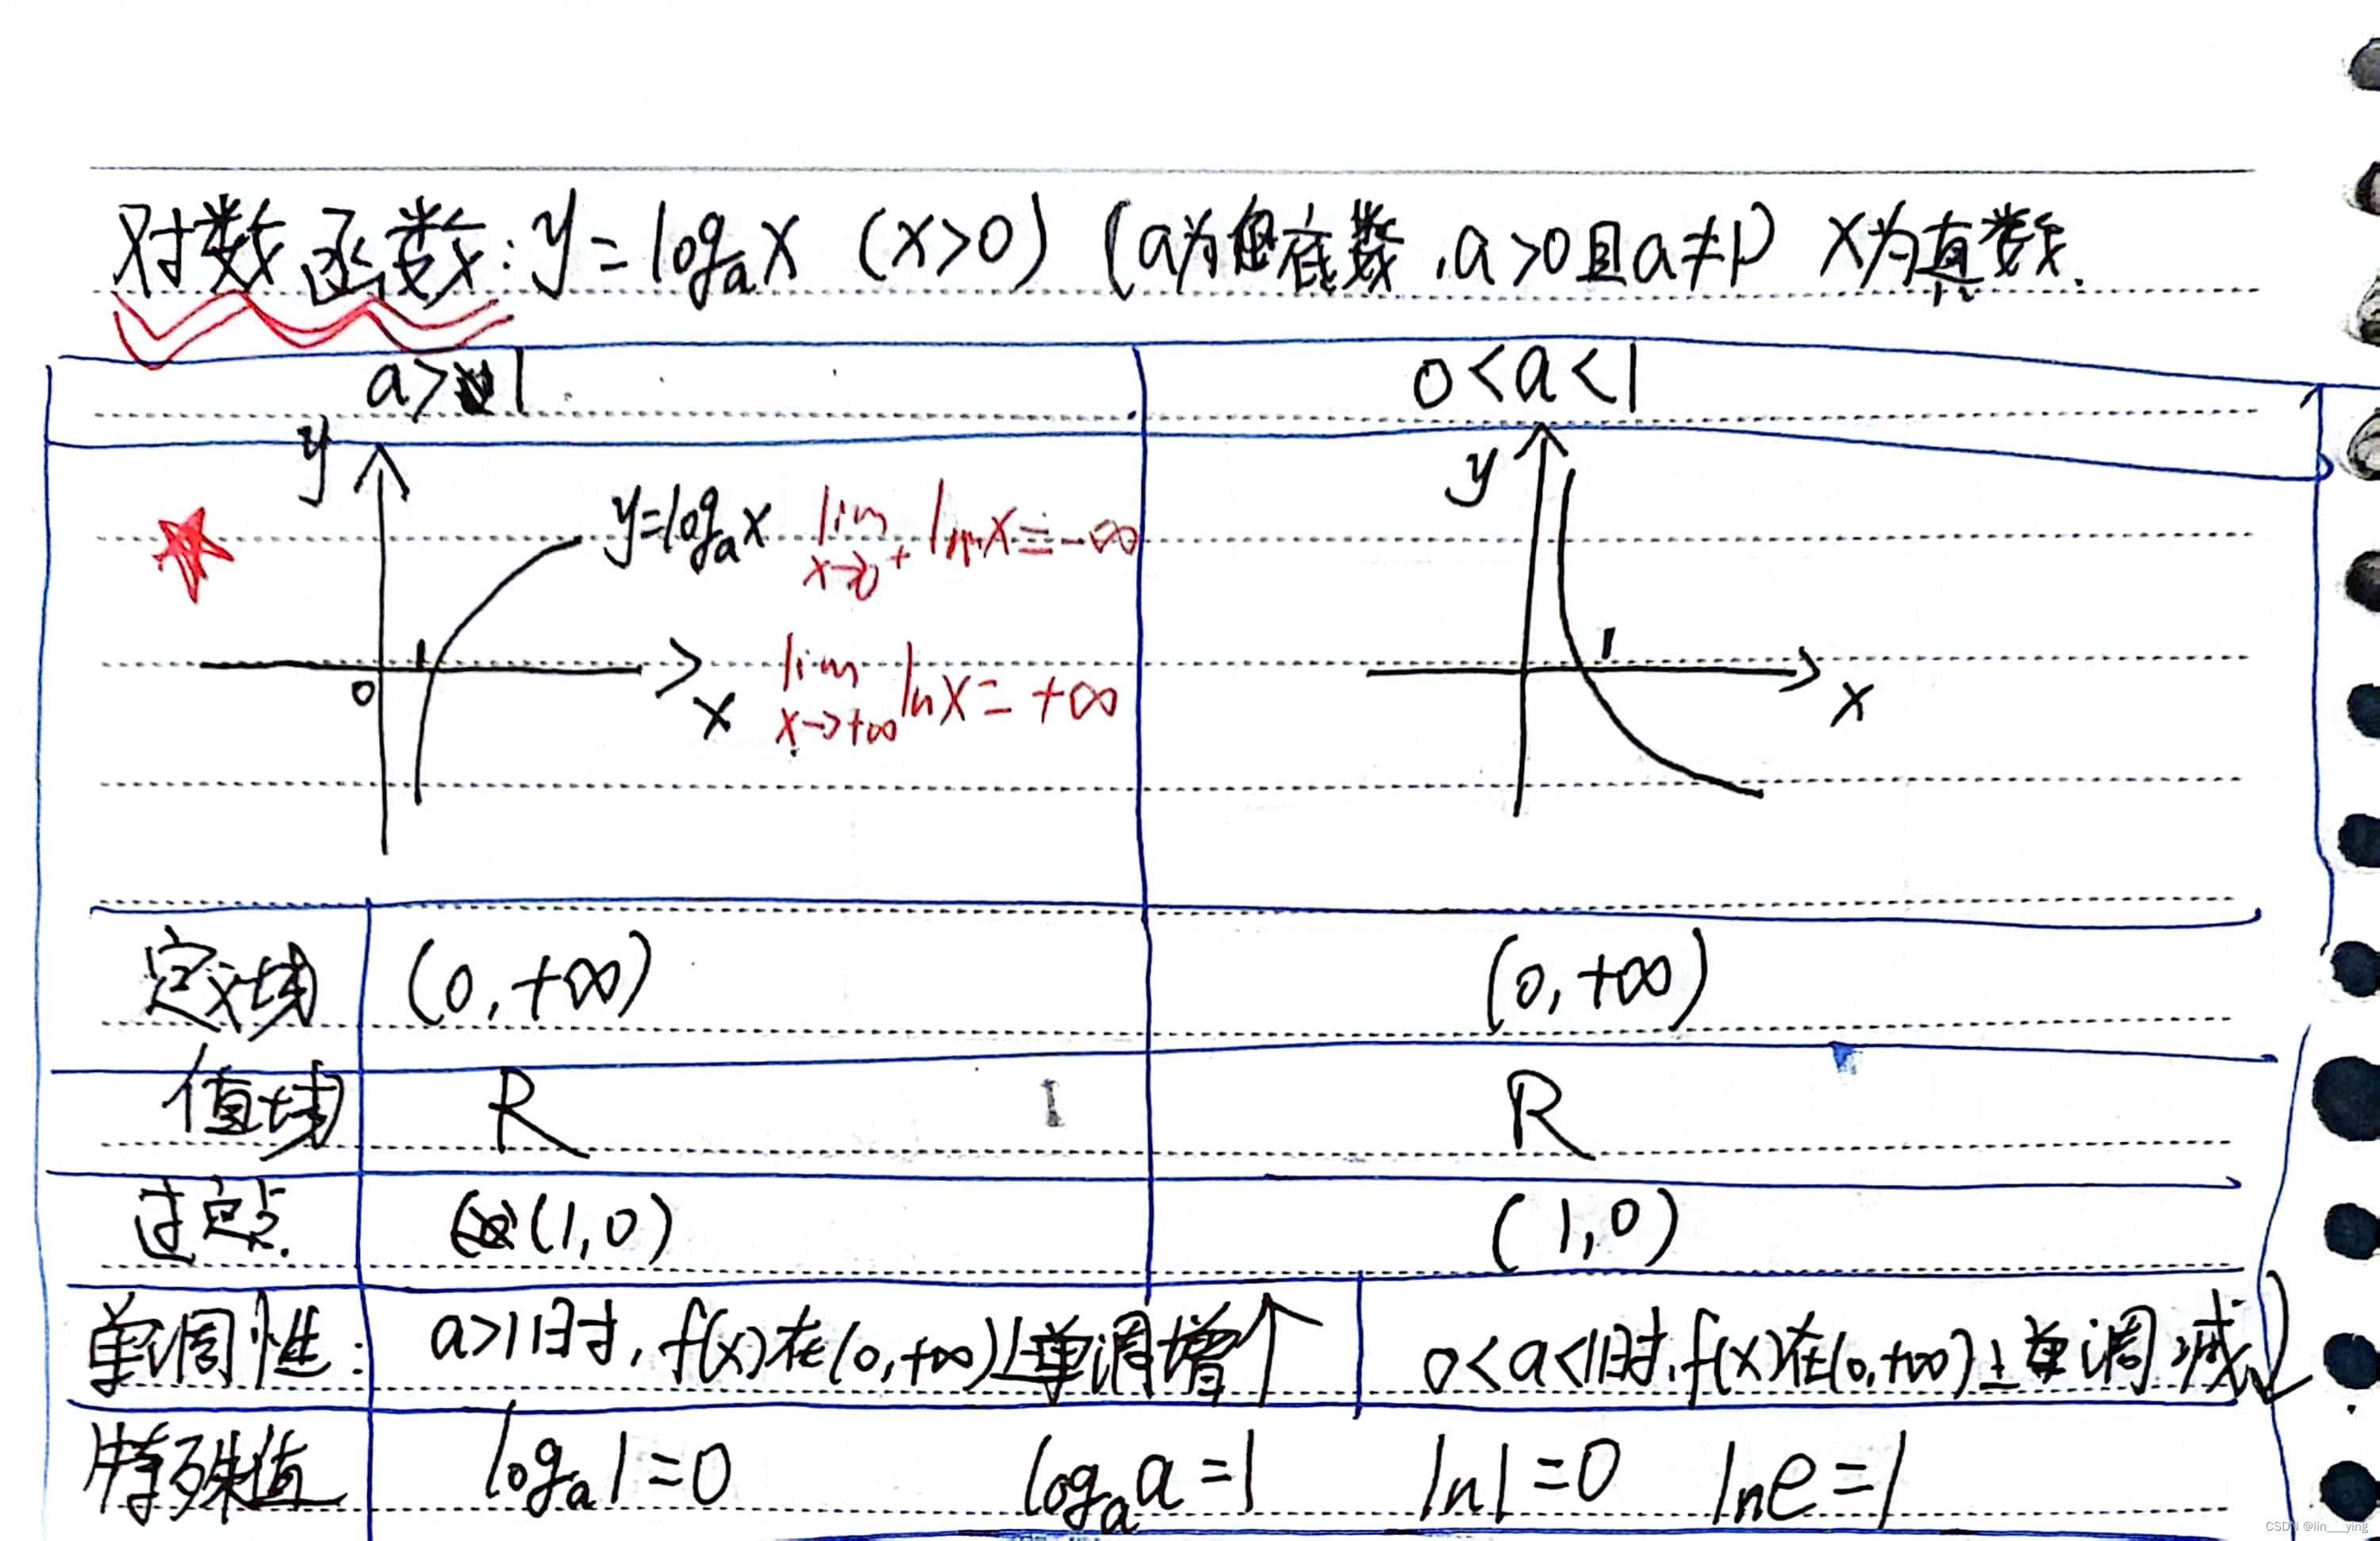 对数函数: y = logₐx (x>0) (a为底数, a>0且a≠1) x为真数.
a>1
0<a<1
y
y=logₐx
lim x→0⁺ lnx = -∞
1
0
x
lim x→+∞ lnx = +∞
y
1
x
定义域 (0, +∞) (0, +∞)
值域 R R
过定点. (1,0) (1,0)
单调性: a>1时, f(x)在(0,+∞)上单调增↑ 0<a<1时, f(x)在(0,+∞)上单调减↓
特殊值 logₐ1=0 logₐa=1 ln1=0 lne=1
CSDN @lin___ying